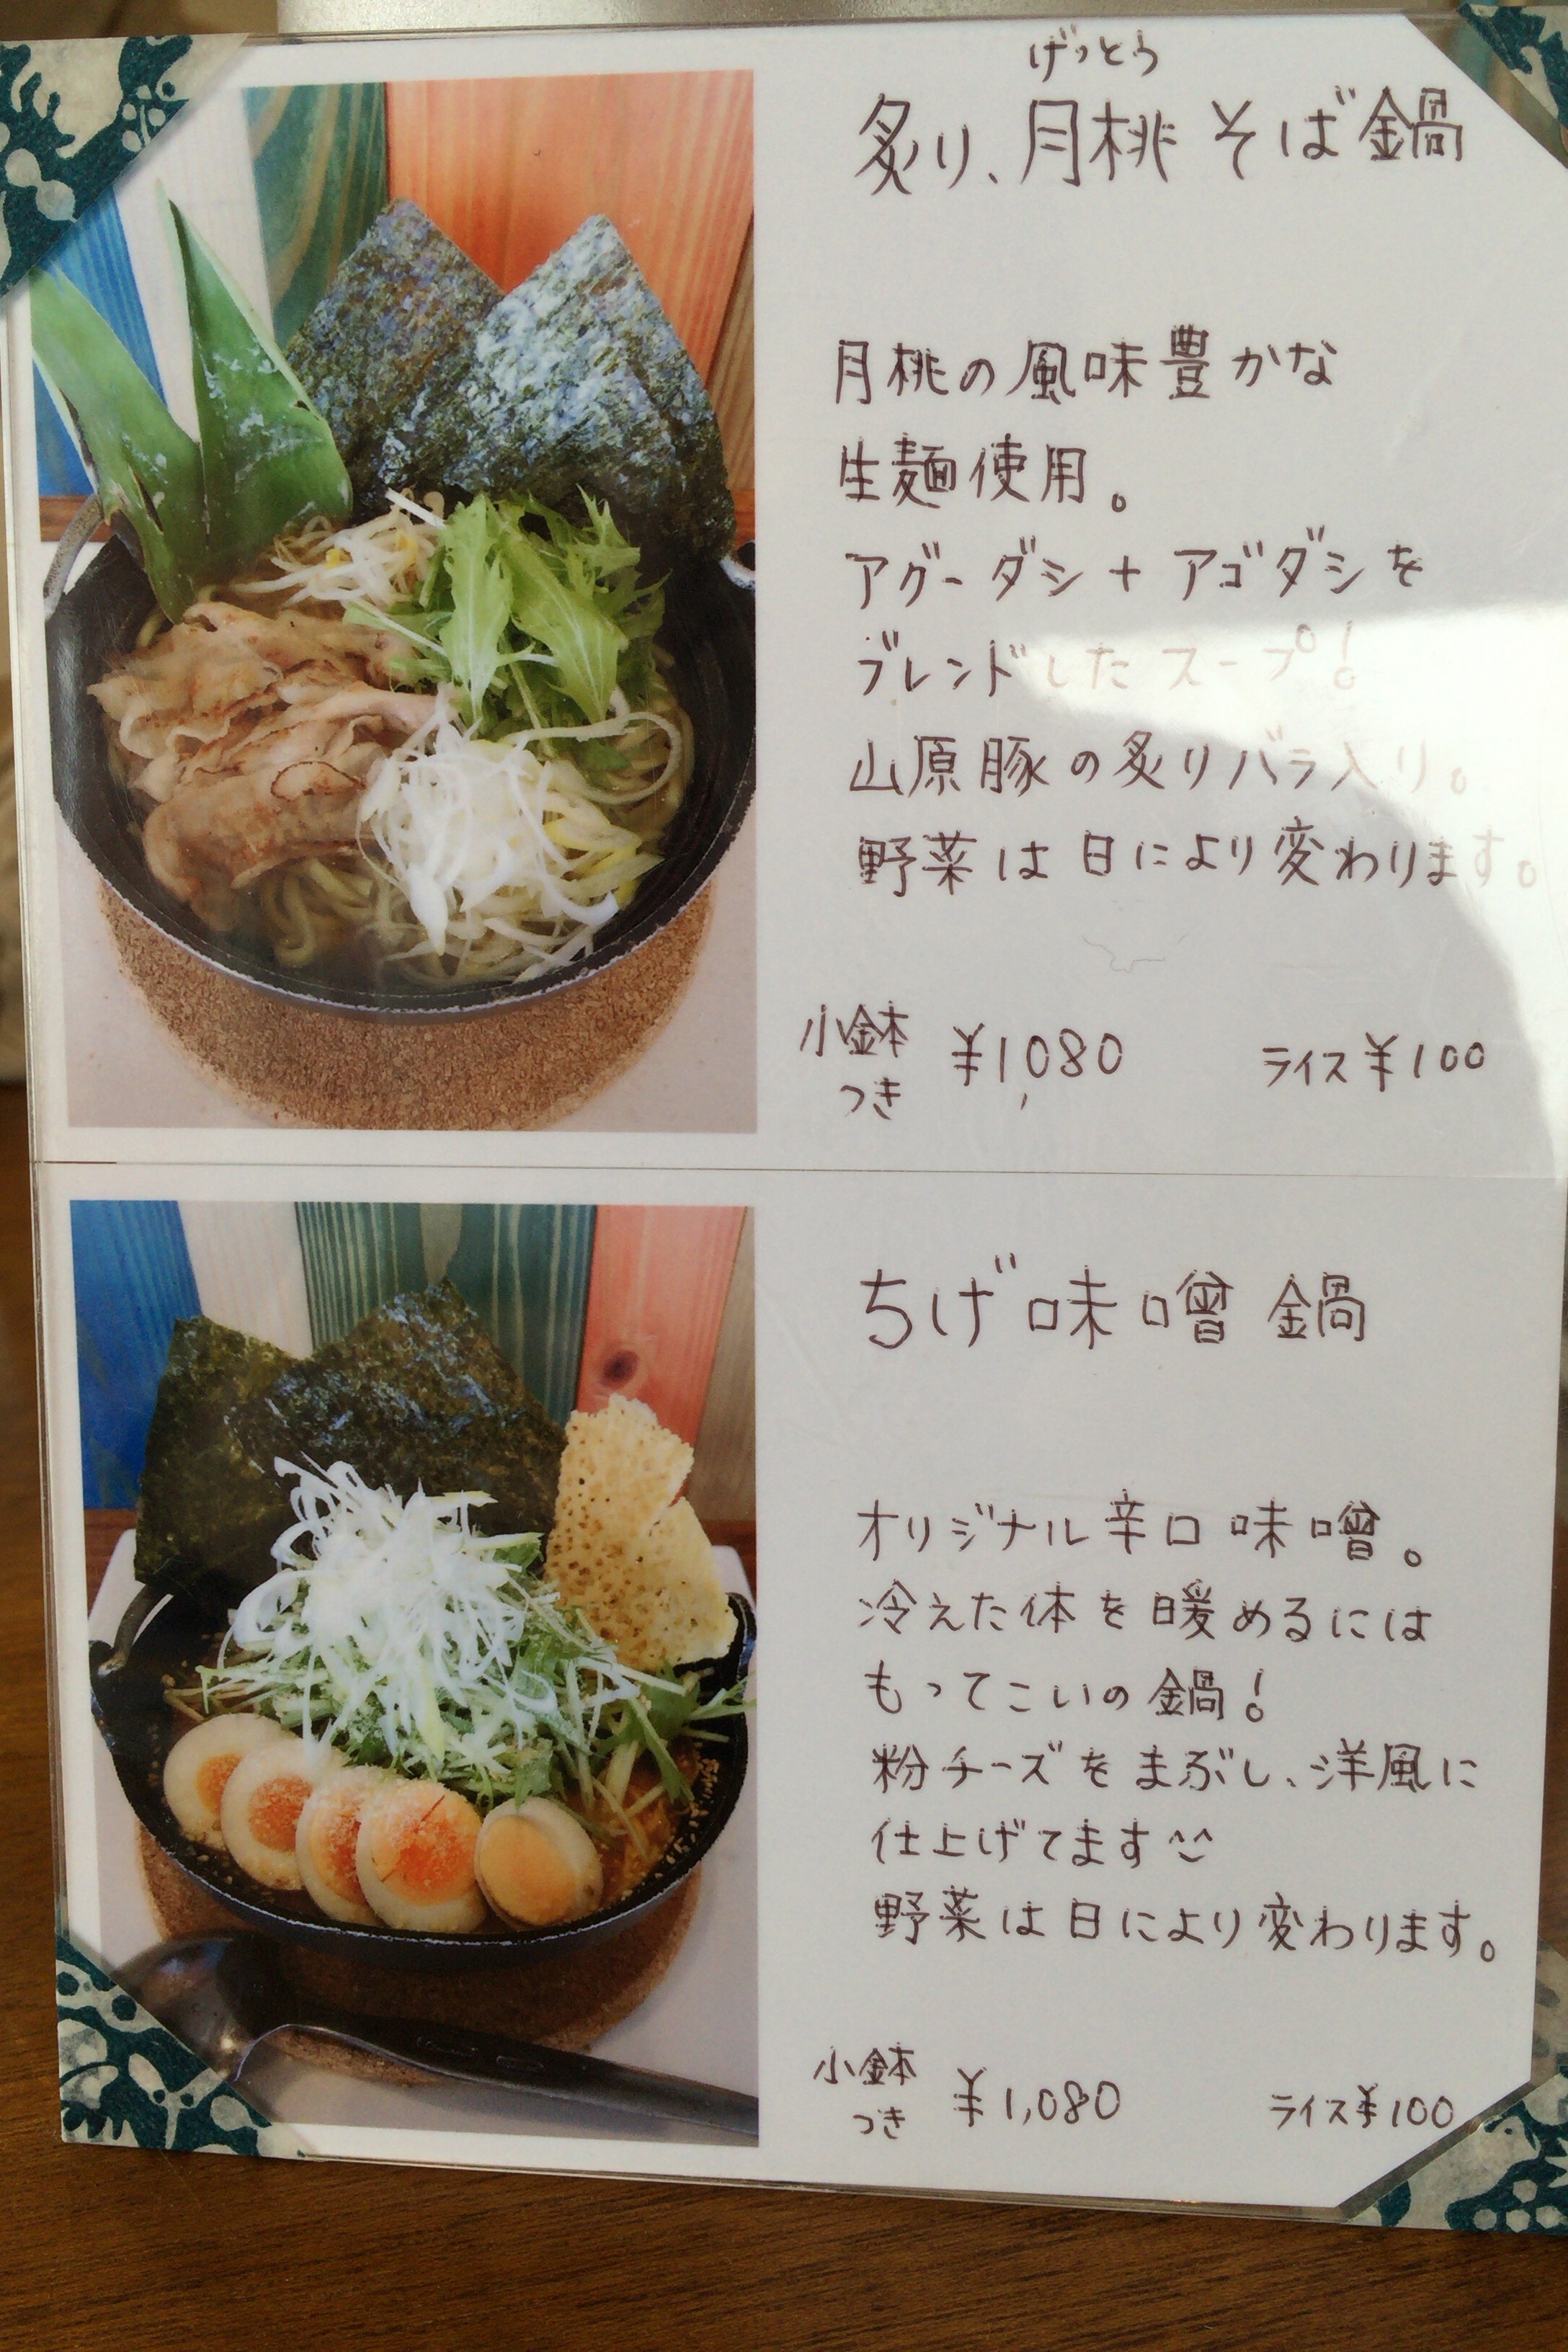 げっとう
炙り、月桃そば鍋
月桃の風味豊かな
生麺使用。
アグーダシ+アゴダシを
ブレンドしたスープ!
山原豚の炙りバラ入り。
野菜は日により変わります。
小鉢つき ¥1,080 ライス¥100
ちげ味噌鍋
オリジナル辛口味噌。
冷えた体を暖めるには
もってこいの鍋!
粉チーズをまぶし、洋風に
仕上げてます^^
野菜は日により変わります。
小鉢つき ¥1,080 ライス¥100